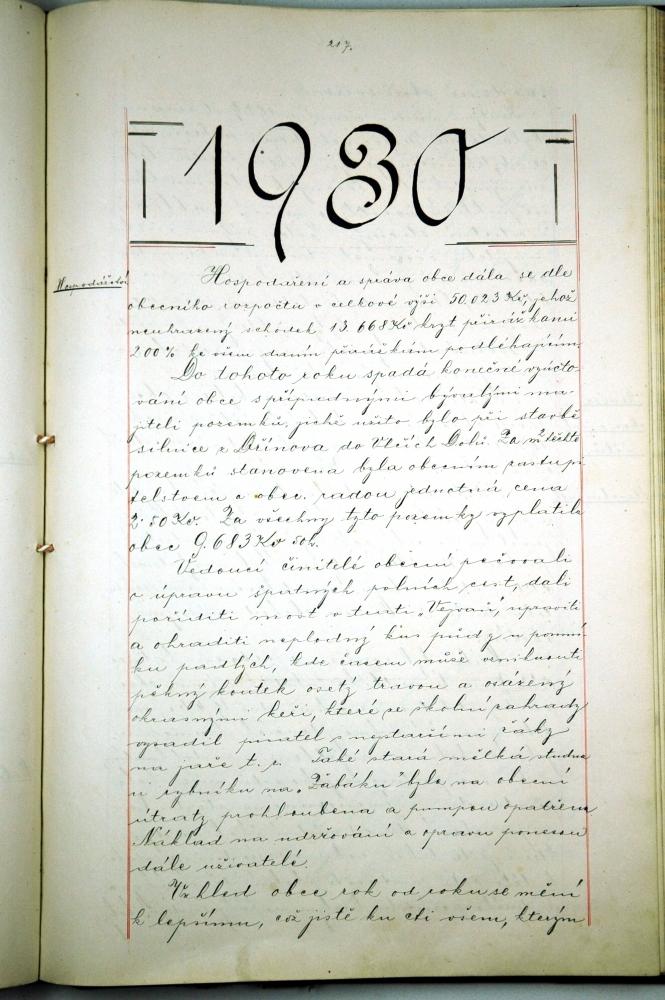 217.
1930
Hospodářství
Hospodaření a správa obce dála se dle
obecního rozpočtu v celkové výši 50.023 Kč, jehož
neuhrazený schodek 13.668 Kč kryt přirážkami
200% ke všem daním přirážkám podléhajícím.
Do tohoto roku spadá konečné vyúčto-
vání obce s případnými bývalými ma-
jiteli pozemků, jichž užito bylo při stavbě
silnice z Dřínova do Vlčích Dolů. Za m² těchto
pozemků stanovena byla obecním zastupi
telstvem a obec. radou jednotná cena
2·50 Kč. Za všechny tyto pozemky vyplatila
obec 9.683 Kč 50h.
Vedoucí činitelé obecní pečovali
o úpravu špatných polních cest, dali
poříditi most v trati „Vejvař", upraviti
a ohraditi neplodný kus půdy u pomní
ku padlých, kde časem může vzniknouti
pěkný koutek osetý travou a osázený
okrasnými keři, které ze školní zahrady
vysadil pisatel s nejstaršími žáky
na jaře t. r. Také stará mělká studna
u rybníku na „Žabáku" byla na obecní
útraty prohloubena a pumpou opatřena
Náklad na udržování a opravu ponesou
dále uživatelé.
Vzhled obce rok od roku se mění
k lepšímu, což jistě ku cti všem, kterým